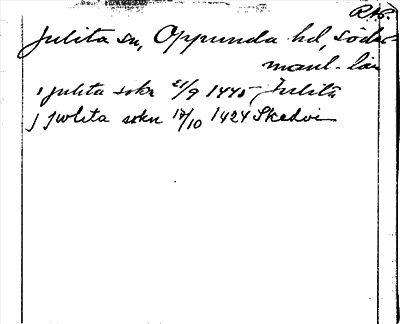 R.A.
Julita sn, Oppunda hd, Söder-
manl. län
i julita sokn 21/9 1445 Julita
j jwlita sokn 17/10 1424 Skedvi